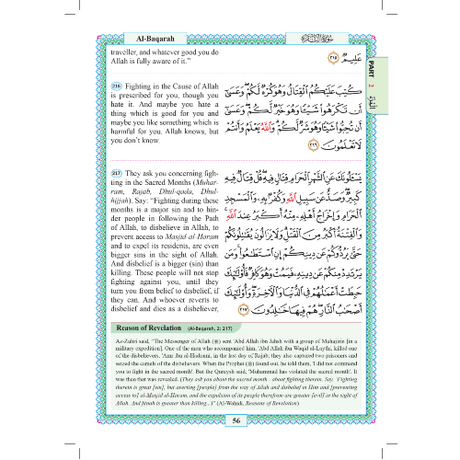 Al-Baqarah
سُورَةُ البَقَرَة
PART 2
traveller, and whatever good you do
Allah is fully aware of it.”
عَلِيمٌ ٢١٥
216 Fighting in the Cause of Allah
is prescribed for you, though you
hate it. And maybe you hate a
thing which is good for you and
maybe you like something which is
harmful for you. Allah knows, but
you don't know.
كُتِبَ عَلَيْكُمُ ٱلْقِتَالُ وَهُوَ كُرْهٌ لَّكُمْ وَعَسَىٰٓ
أَن تَكْرَهُوا۟ شَيْـًٔا وَهُوَ خَيْرٌ لَّكُمْ وَعَسَىٰٓ
أَن تُحِبُّوا۟ شَيْـًٔا وَهُوَ شَرٌّ لَّكُمْ وَٱللَّهُ يَعْلَمُ وَأَنتُمْ
لَا تَعْلَمُونَ ٢١٦
217 They ask you concerning fight-
ing in the Sacred Months (Muhar-
ram, Rajab, Dhul-qada, Dhul-
hijjah). Say: “Fighting during these
months is a major sin and to hin-
der people in following the Path
of Allah, to disbelieve in Allah, to
prevent access to Masjid al-Haram
and to expel its residents, are even
bigger sins in the sight of Allah.
And disbelief is a bigger (sin) than
killing. These people will not stop
fighting against you, until they
turn you from belief to disbelief, if
they can. And whoever reverts to
disbelief and dies as a disbeliever,
يَسْـَٔلُونَكَ عَنِ ٱلشَّهْرِ ٱلْحَرَامِ قِتَالٍ فِيهِ قُلْ قِتَالٌ فِيهِ
كَبِيرٌ وَصَدٌّ عَن سَبِيلِ ٱللَّهِ وَكُفْرٌۢ بِهِۦ وَٱلْمَسْجِدِ
ٱلْحَرَامِ وَإِخْرَاجُ أَهْلِهِۦ مِنْهُ أَكْبَرُ عِندَ ٱللَّهِ
وَٱلْفِتْنَةُ أَكْبَرُ مِنَ ٱلْقَتْلِ وَلَا يَزَالُونَ يُقَٰتِلُونَكُمْ
حَتَّىٰ يَرُدُّوكُمْ عَن دِينِكُمْ إِنِ ٱسْتَطَٰعُوا۟ وَمَن
يَرْتَدِدْ مِنكُمْ عَن دِينِهِۦ فَيَمُتْ وَهُوَ كَافِرٌ فَأُو۟لَٰٓئِكَ
حَبِطَتْ أَعْمَٰلُهُمْ فِى ٱلدُّنْيَا وَٱلْـَٔاخِرَةِ وَأُو۟لَٰٓئِكَ
أَصْحَٰبُ ٱلنَّارِ هُمْ فِيهَا خَٰلِدُونَ ٢١٧
Reason of Revelation (Al-Baqarah, 2: 217)
Az-Zuhri said, "The Messenger of Allah (ﷺ) sent 'Abd Allah ibn Jahsh with a group of Muhajirin [on a
military expedition]. One of the men who accompanied him, 'Abd Allah ibn Waqid al-Laythi, killed one
of the disbelievers, 'Amr ibn al-Hadrami, in the last day of Rajab; they also captured two prisoners and
seized the camels of the disbelievers. When the Prophet (ﷺ) found out, he told them, 'I did not command
you to fight in the sacred month'. But the Quraysh said, 'Muhammad has violated the sacred month'. It
was then that was revealed: (They ask you about the sacred month - about fighting therein. Say: 'Fighting
therein is great [sin], but averting [people] from the way of Allah and disbelief in Him and [preventing
access to] al-Masjid al-Haram, and the expulsion of its people therefrom are greater [evil] in the sight of
Allah. And fitnah is greater than killing...)" (Al-Wahidi, Reasons of Revelation)
56